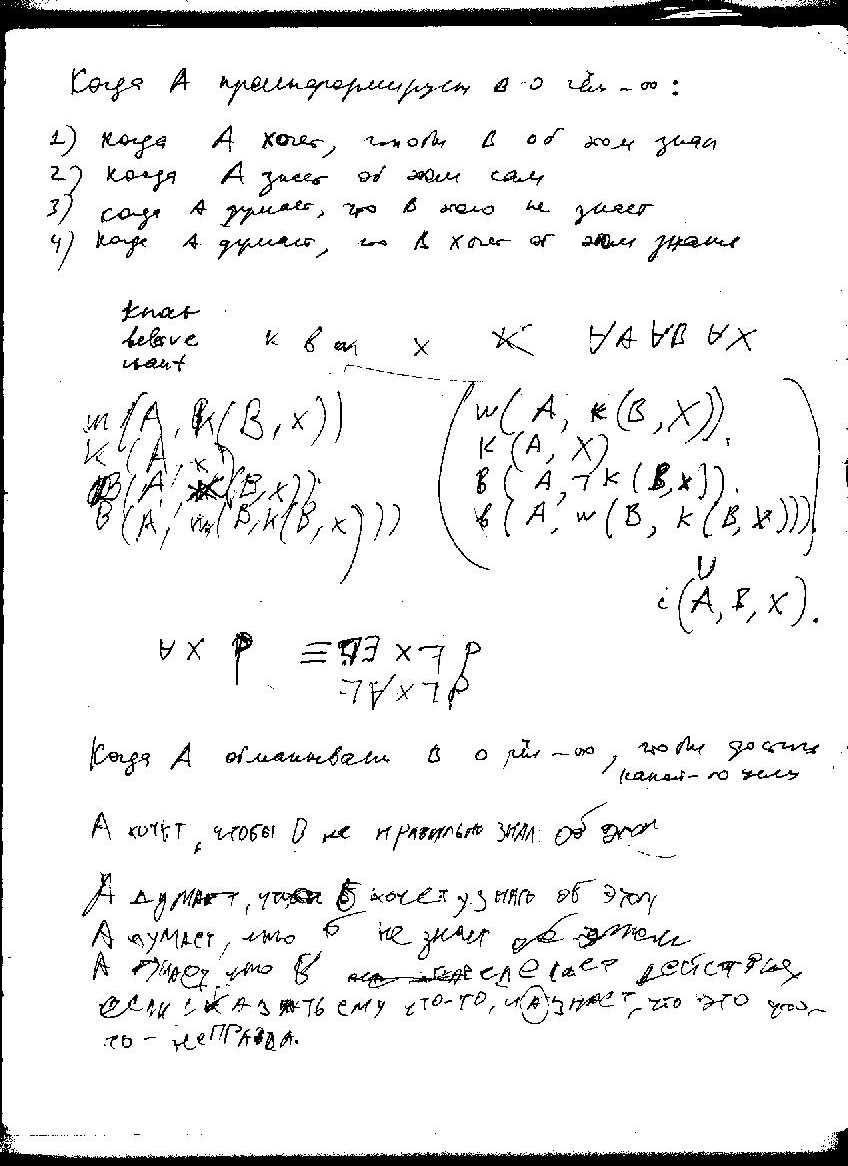 Когда А проинформирует В о чём-то:
1) когда А хочет, чтобы В об этом знал
2) когда А знает об этом сам
3) когда А думает, что В этого не знает
4) когда А думает, что В хочет об этом знать
know
belave
want
к в
x
∀A ∀B ∀X
w(A, K(B, x))
K(A, x)
B(A, K(B, x))
B(A, w(B, K(B, x)))
w(A, k(B, X)).
K(A, X)
в(A, ¬K(B, x)).
в(A, w(B, K(B, x))).
i(A, B, X).
∀ X P ≡
Когда А обманывает В о чём-то, чтобы достичь
какой-то цели
А хочет, чтобы В не правильно знал об этом
А думает, что В хочет узнать об этом
А думает, что В не знает об этом
А знает, что В
если сказать ему что-то, и А знает, что это что-
то - неправда.